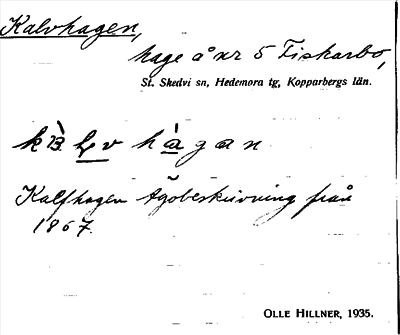 Kalvhagen,
hage å nr 5 Fiskarbo,
St. Skedvi sn, Hedemora tg, Kopparbergs län.
hàgan
Kalfhagen Ägobeskrivning från
1867.
OLLE HILLNER, 1935.